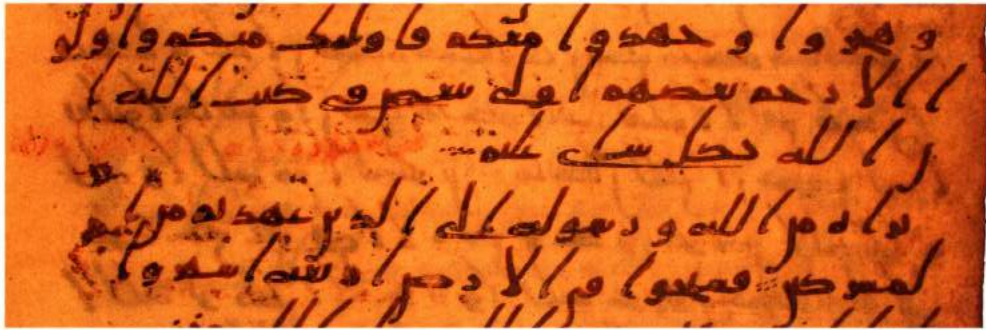 و هجروا و جهدوا معكم فاولئك منكم واولو
ا الارحم بعضهم اولى ببعض فى كتب الله ا
ن الله بكل شى عليم
براه من الله و رسوله الى الذين عهدتم من ا
لمشركين فسيحوا فى الارض اربعة اشهر وا